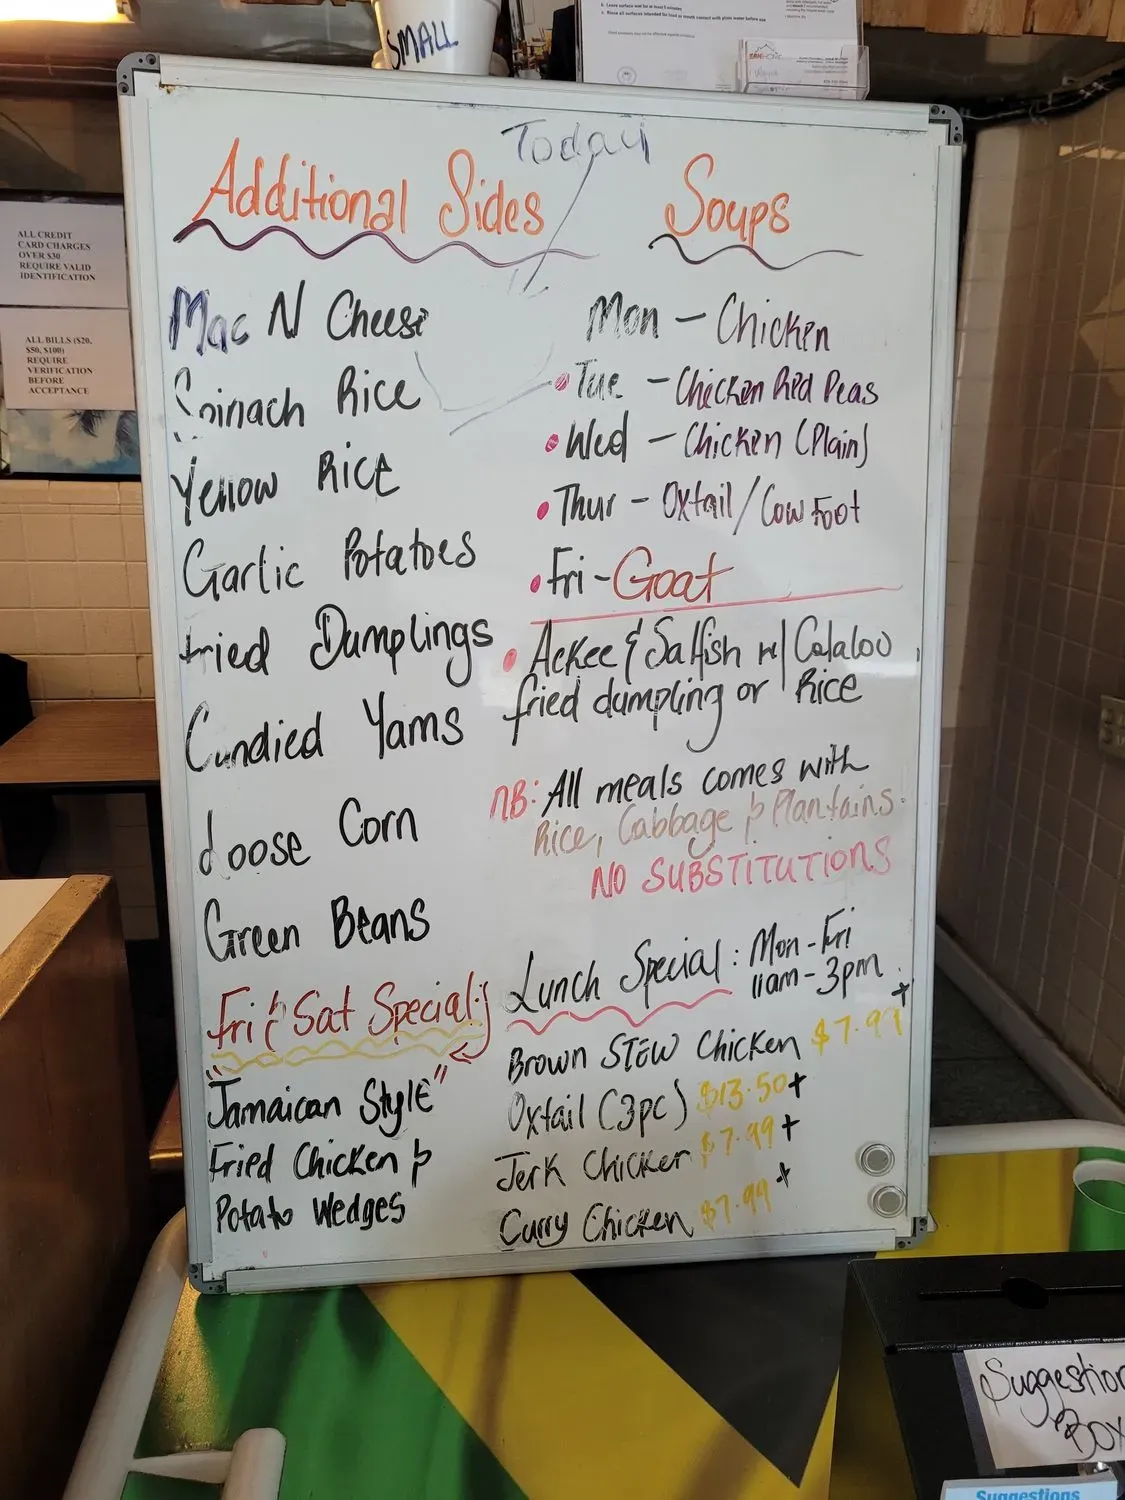 SMALL
Today
Additional Sides
Mac N Cheese
Spinach Rice
Yellow Rice
Garlic Potatoes
Fried Dumplings
Candied Yams
Loose Corn
Green Beans
Fri & Sat Special
"Jamaican Style"
Fried Chicken &
Potato Wedges
Soups
Mon - Chicken
• Tue - Chicken Red Peas
• Wed - Chicken (Plain)
• Thur - Oxtail / Cow Foot
• Fri - Goat
• Ackee & Salfish w/ Calaloo
fried dumpling or Rice
NB: All meals comes with
Rice, Cabbage & Plantains.
NO SUBSTITUTIONS
Lunch Special: Mon-Fri
11am - 3pm
Brown Stew Chicken $7.99+
Oxtail (3pc) $13.50+
Jerk Chicken $7.99+
Curry Chicken $7.99+
ALL CREDIT
CARD CHARGES
OVER $30
REQUIRE VALID
IDENTIFICATION
ALL BILLS ($20,
$50, $100)
REQUIRE
VERIFICATION
BEFORE
ACCEPTANCE
Suggestion
Box
Suggestions